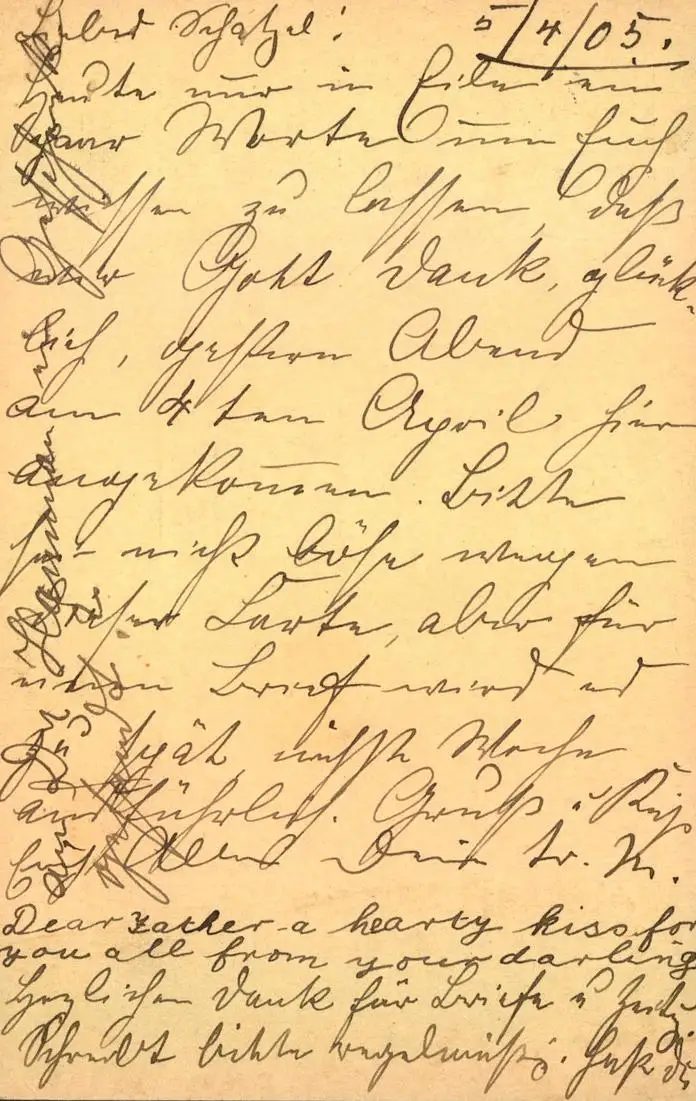 5/4/05.
Liebes Schatzel!
Heute nur in Eile ein
paar Worte um Euch
wissen zu lassen, daß
wir Gott Dank, glück-
lich, gestern Abend
am 4ten April hier
angekommen. Bitte
sei nicht böse wegen
dieser Karte, aber für
einen Brief wird es
zu spät, nächste Woche
ausführlich. Gruß u Kuß
Euch Allen Dein tr. M.
Dear Father a hearty kiss for
you all from your darling
Herzlichen Dank für Briefe u
Schreibt bitte regelmäßig.